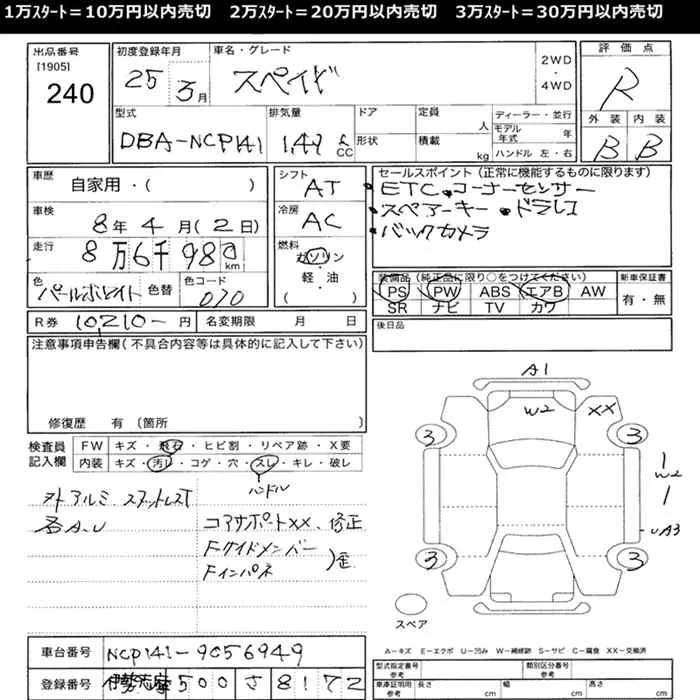 1万ｽﾀｰﾄ＝10万円以内売切　2万ｽﾀｰﾄ＝20万円以内売切　3万ｽﾀｰﾄ＝30万円以内売切
出品番号 初度登録年月 車名・グレード 2WD・4WD 評価点
[1905] 240 25 3月 スペイド R
型式 排気量 ドア 定員 人 ディーラー・並行 外装 内装
DBA-NCP141 1.49 ℓ CC 形状 積載 kg モデル年式 年 B B
ハンドル 左・右
車歴 自家用・( ) シフト AT セールスポイント (正常に機能するものに限ります)
・ETC・コーナーセンサー
車検 8年4月(2日) 冷房 AC ・スペアーキー・ドラレコ
・バックカメラ
走行 8万6千980km 燃料 ガソリン・軽・油 ( )
色 パールホワイト 色替 色コード 070 装備品 (純正品に限り○をつけてください) 新車保証書
PS PW ABS エアB AW 有・無
SR ナビ TV カワ
R券 10210- 円 名変期限 月 日 後日品
注意事項申告欄 (不具合内容等は具体的に記入して下さい)
修復歴 有 (箇所
検査員記入欄 FW キズ・飛石・ヒビ割・リペア跡・X要
内装 キズ・汚れ・コゲ・穴・スレ・キレ・破し
ハンドル
外アルミ
各A.U コアサポートXX、修正
Fサイドメンバー
Fインパネ )歪
A1
W2 XX
3 3
W2
UA3
3 3
スペア
A―キズ E―エクボ U―凹み W―補修跡 S―サビ C―腐食 XX―交換済
車台番号 NCP141-9056949 型式指定番号 参考 類別区分番号 参考
登録番号 伊勢志摩 500 さ 8172 車庫証明用 参考 長さ cm 幅 cm 高さ cm